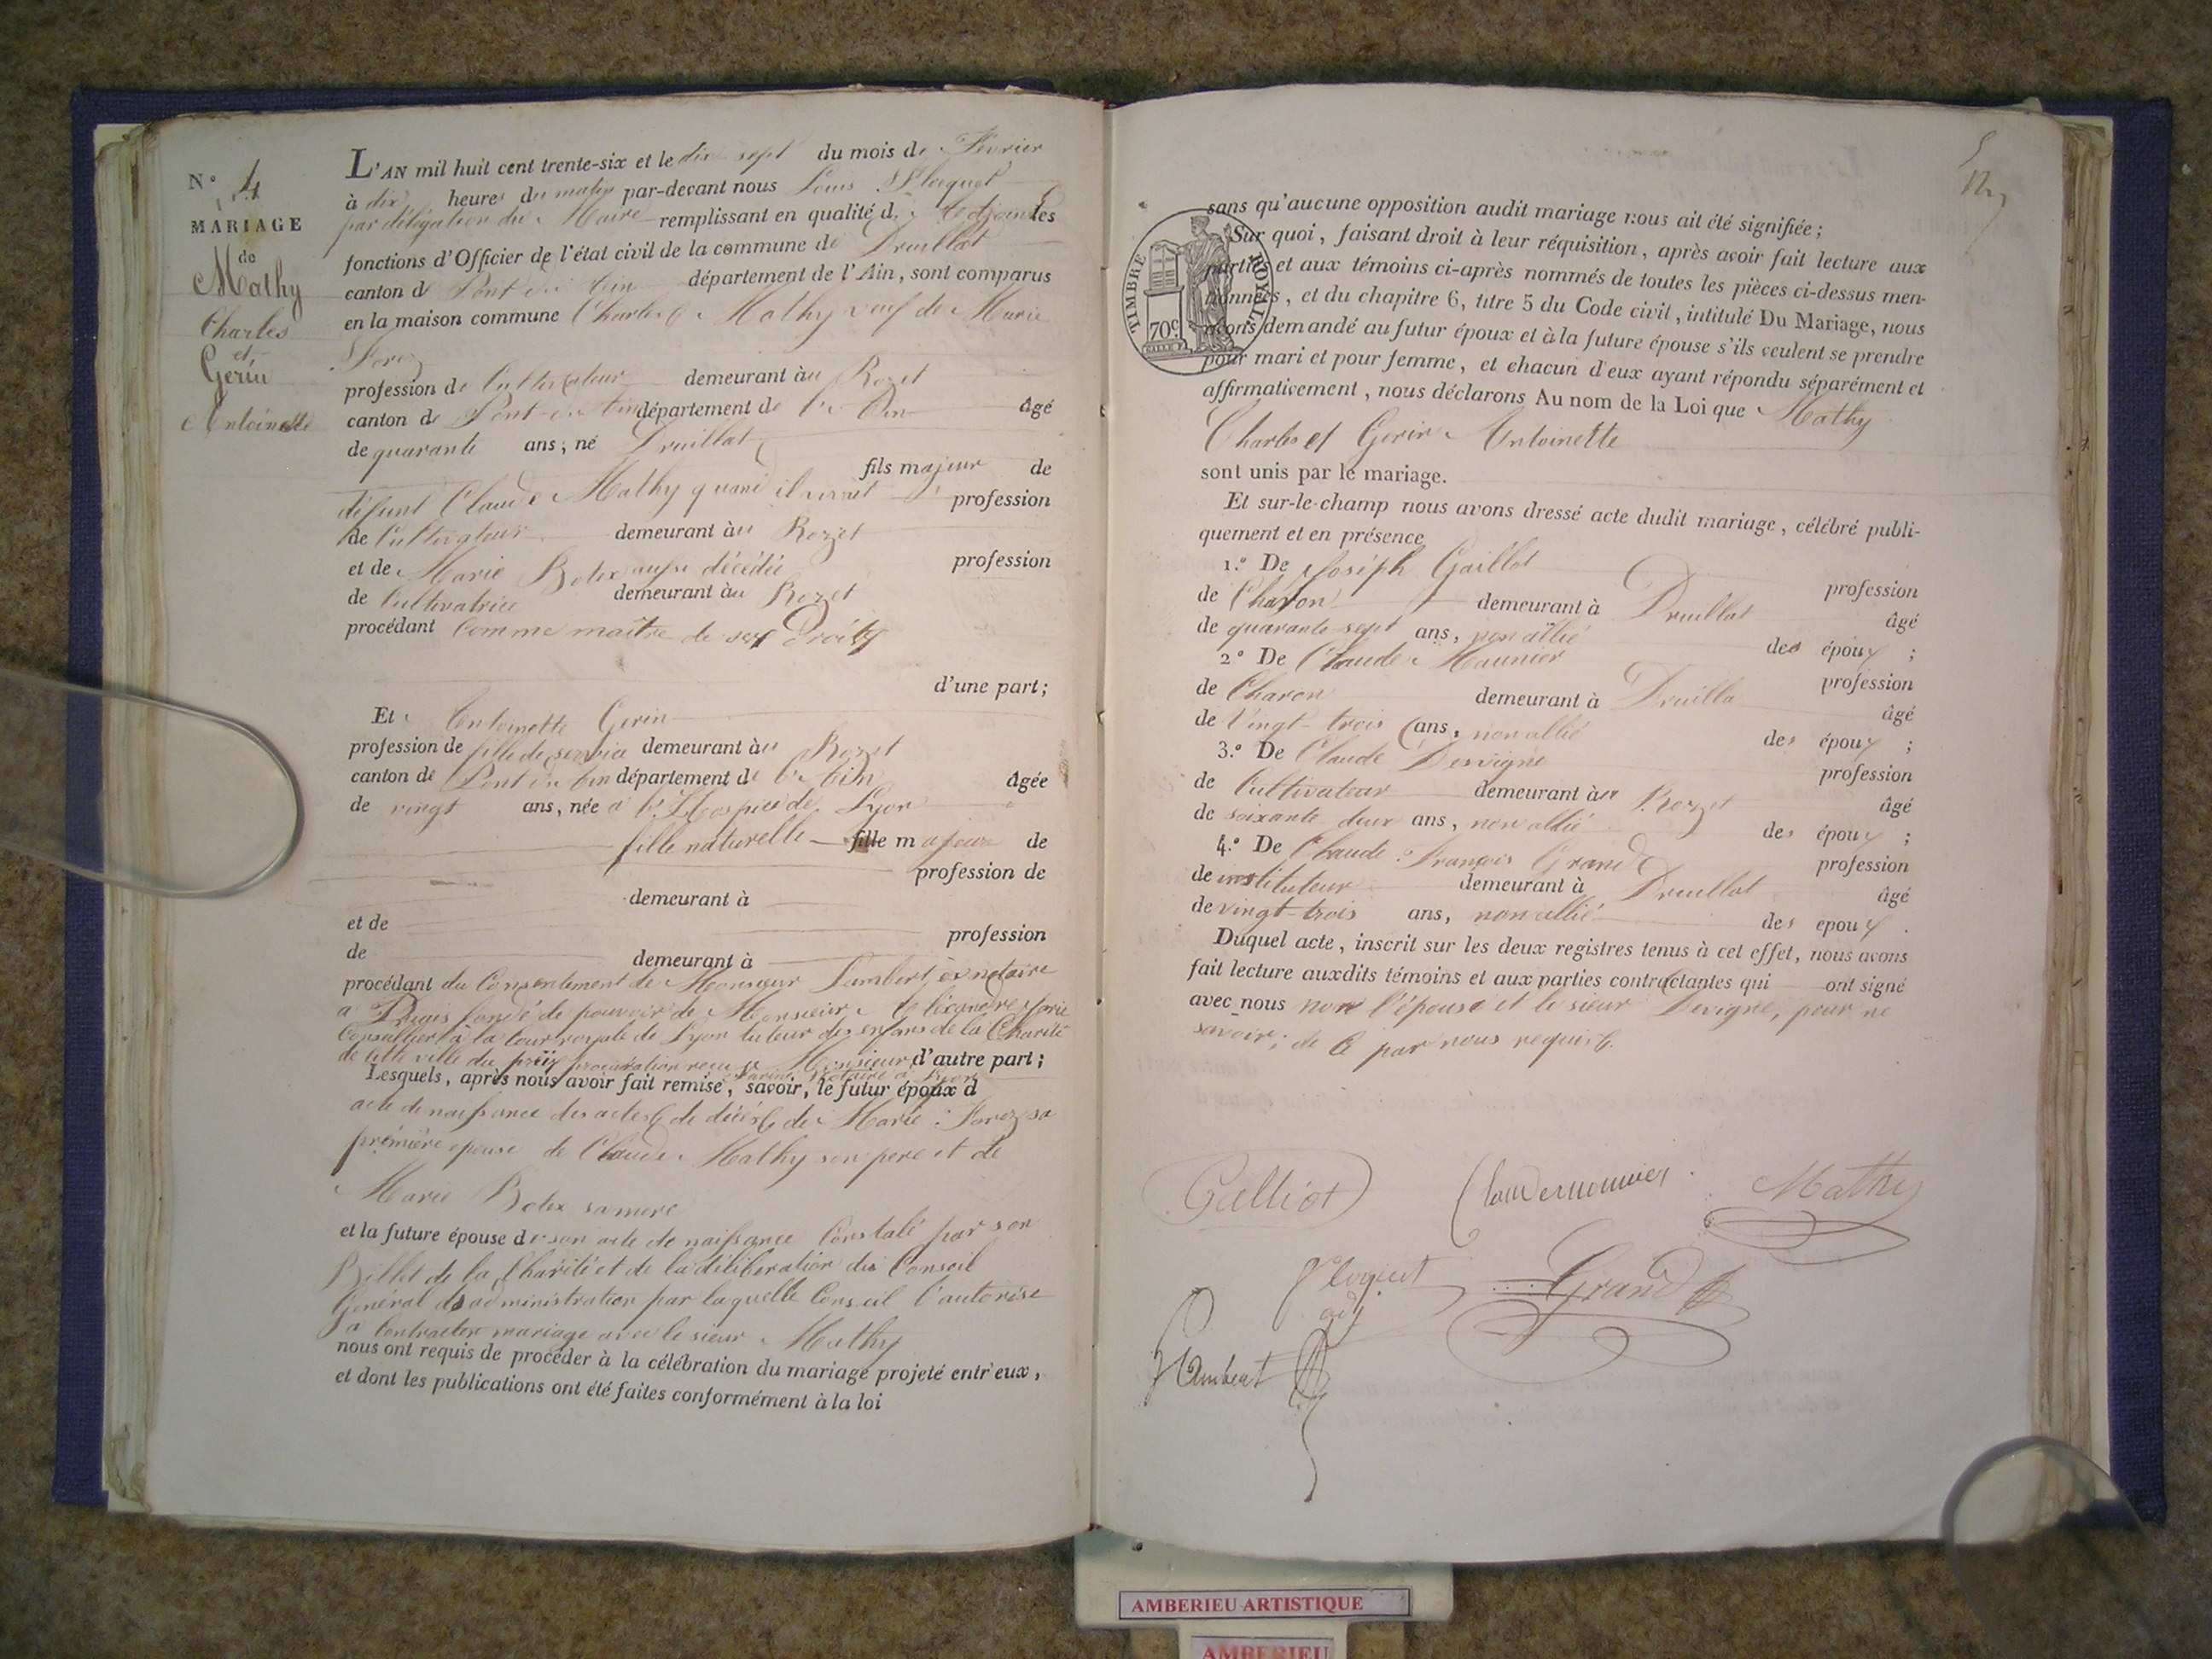 N.° 4
MARIAGE
de
Mathy
Charles
et
Gerin
Antoinette
L'AN mil huit cent trente-six et le dix sept du mois de Février
à dix heures du matin par-devant nous Louis Ploquet
par délégation du Maire remplissant en qualité d'adjoint les
fonctions d'Officier de l'état civil de la commune de Druillat
canton de Pont du Ain département de l'Ain, sont comparus
en la maison commune Charles Mathy veuf de Marie
profession de Cultivateur demeurant au Rozet
canton de Pont du Ain département de l'Ain âgé
de quarante ans, né Druillat
fils majeur de
défunt Claude Mathy quand il vivait profession
de Cultivateur demeurant au Rozet
et de Marie Bolex aussi décédée profession
de Cultivatrice demeurant au Rozet
procédant Comme maître de ses Droits
d'une part;
Et Antoinette Gerin
profession de fille de service demeurant au Rozet
canton de Pont du Ain département de l'Ain âgée
de vingt ans, née à l'Hospice de Lyon
fille naturelle fille majeure de
profession de
demeurant à
et de profession
de demeurant à
procédant du Consentement de Monsieur Lambert, ex notaire
a fondé de pouvoir de Monsieur Alexandre
Conseiller à la Cour royale de Lyon tuteur des enfans de la Charité
de cette ville du procuration reçue Monsieur d'autre part;
notaire à Lyon
Lesquels, après nous avoir fait remise, savoir, le futur époux d
acte de naissance des actes de décès de Marie Sorez sa
première epouse de Claude Mathy son pere et de
Marie Bolex sa mere
et la future épouse de son acte de naissance Constaté par son
Billet de la Charité et de la délibération du Conseil
Général d'administration par laquelle Conseil l'autorise
a Contracter mariage avec le sieur Mathy
nous ont requis de procéder à la célébration du mariage projeté entr'eux,
et dont les publications ont été faites conformément à la loi
sans qu'aucune opposition audit mariage nous ait été signifiée;
Sur quoi, faisant droit à leur réquisition, après avoir fait lecture aux
parties et aux témoins ci-après nommés de toutes les pièces ci-dessus men-
tionnées, et du chapitre 6, titre 5 du Code civil, intitulé Du Mariage, nous
avons demandé au futur époux et à la future épouse s'ils veulent se prendre
pour mari et pour femme, et chacun d'eux ayant répondu séparément et
affirmativement, nous déclarons Au nom de la Loi que Mathy
Charles et Gerin Antoinette
sont unis par le mariage.
Et sur-le-champ nous avons dressé acte dudit mariage, célébré publi-
quement et en présence
1.° De Joséph Gaillot profession
de Charon demeurant à Druillat âgé
de quarante sept ans, non allié des époux;
2.° De Claude Maunier profession
de Charon demeurant à Druilla âgé
de vingt-trois ans, non allié des époux;
3.° De Claude Desvigne profession
de Cultivateur demeurant au Rozet âgé
de soixante deux ans, non allié des époux;
4.° De Claude François Grand profession
de instituteur demeurant à Druillat âgé
de vingt-trois ans, non allié des epoux.
Duquel acte, inscrit sur les deux registres tenus à cet effet, nous avons
fait lecture auxdits témoins et aux parties contractantes qui ont signé
avec nous non l'épouse et le sieur Devigne, pour ne
savoir; de Ce par nous requis.
TIMBRE ROYAL
70c
Galliot
Mathy
adj
Grand
Lambert
AMBERIEU ARTISTIQUE
AMBERIEU